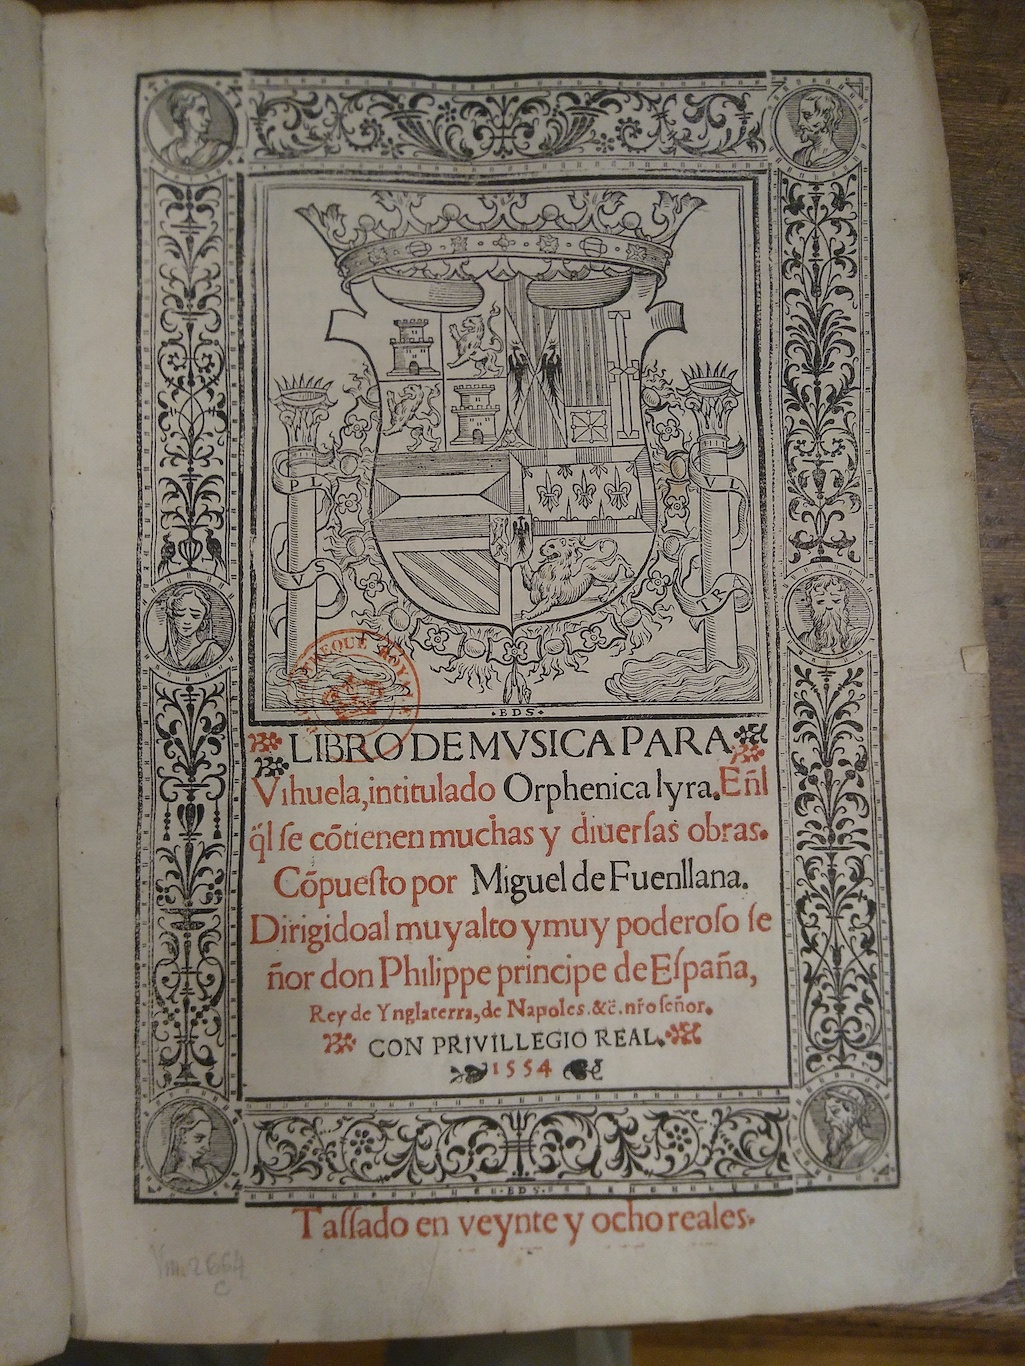 PL
VS
VL
TR
BIBLIOTHEQUE ROYALE
·BDS·
LIBRO DE MVSICA PARA
Vihuela, intitulado Orphenica lyra. Eñl
q̃l se cõtienen muchas y diuersas obras.
Cõpuesto por Miguel de Fuenllana.
Dirigido al muy alto y muy poderoso se
ñor don Philippe principe de España,
Rey de Ynglaterra, de Napoles. &c̃. nr̃o señor.
CON PRIVILLEGIO REAL.
1554
·BDS·
Tassado en veynte y ocho reales.
Vm. 2664
C